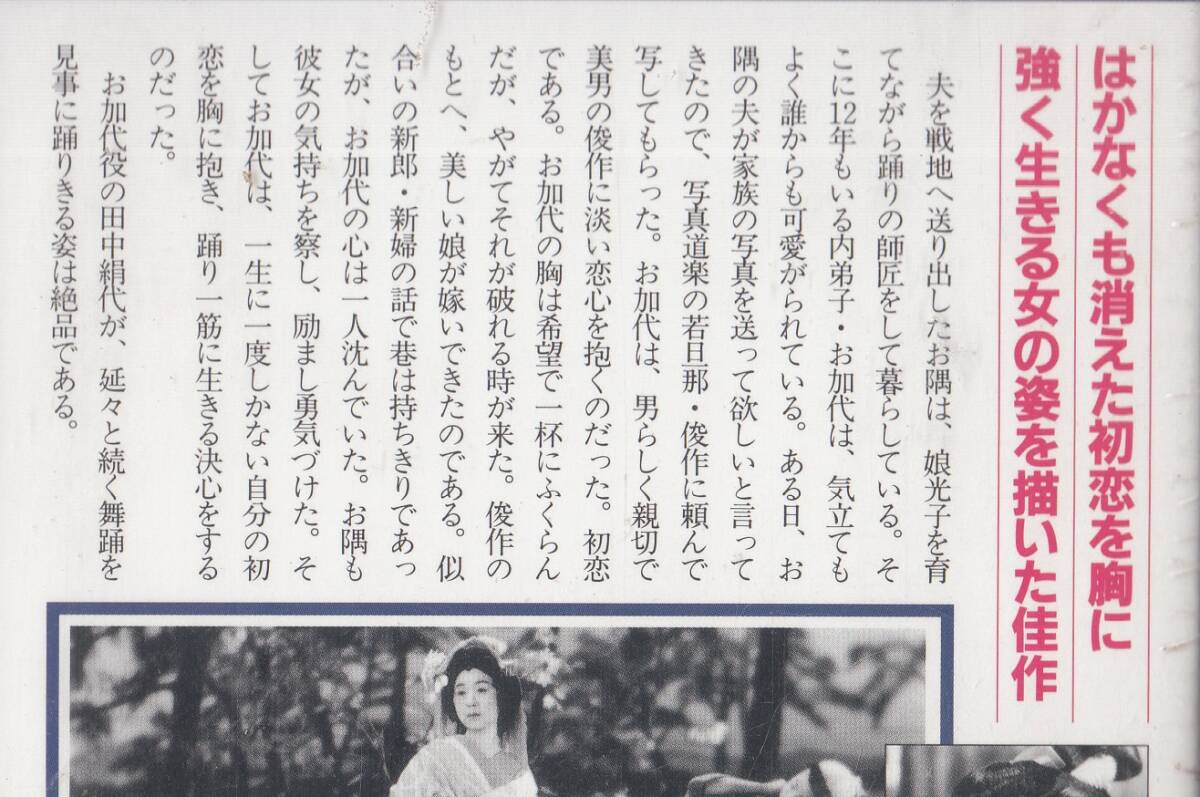 はかなくも消えた初恋を胸に
強く生きる女の姿を描いた佳作
夫を戦地へ送り出したお隅は、娘光子を育
てながら踊りの師匠をして暮らしている。そ
こに12年もいる内弟子・お加代は、気立ても
よく誰からも可愛がられている。ある日、お
隅の夫が家族の写真を送って欲しいと言って
きたので、写真道楽の若旦那・俊作に頼んで
写してもらった。お加代は、男らしく親切で
美男の俊作に淡い恋心を抱くのだった。初恋
である。お加代の胸は希望で一杯にふくらん
だが、やがてそれが破れる時が来た。俊作の
もとへ、美しい娘が嫁いできたのである。似
合いの新郎・新婦の話で巷は持ちきりであっ
たが、お加代の心は一人沈んでいた。お隅も
彼女の気持ちを察し、励まし勇気づけた。そ
してお加代は、一生に一度しかない自分の初
恋を胸に抱き、踊り一筋に生きる決心をする
のだった。
お加代役の田中絹代が、延々と続く舞踊を
見事に踊りきる姿は絶品である。